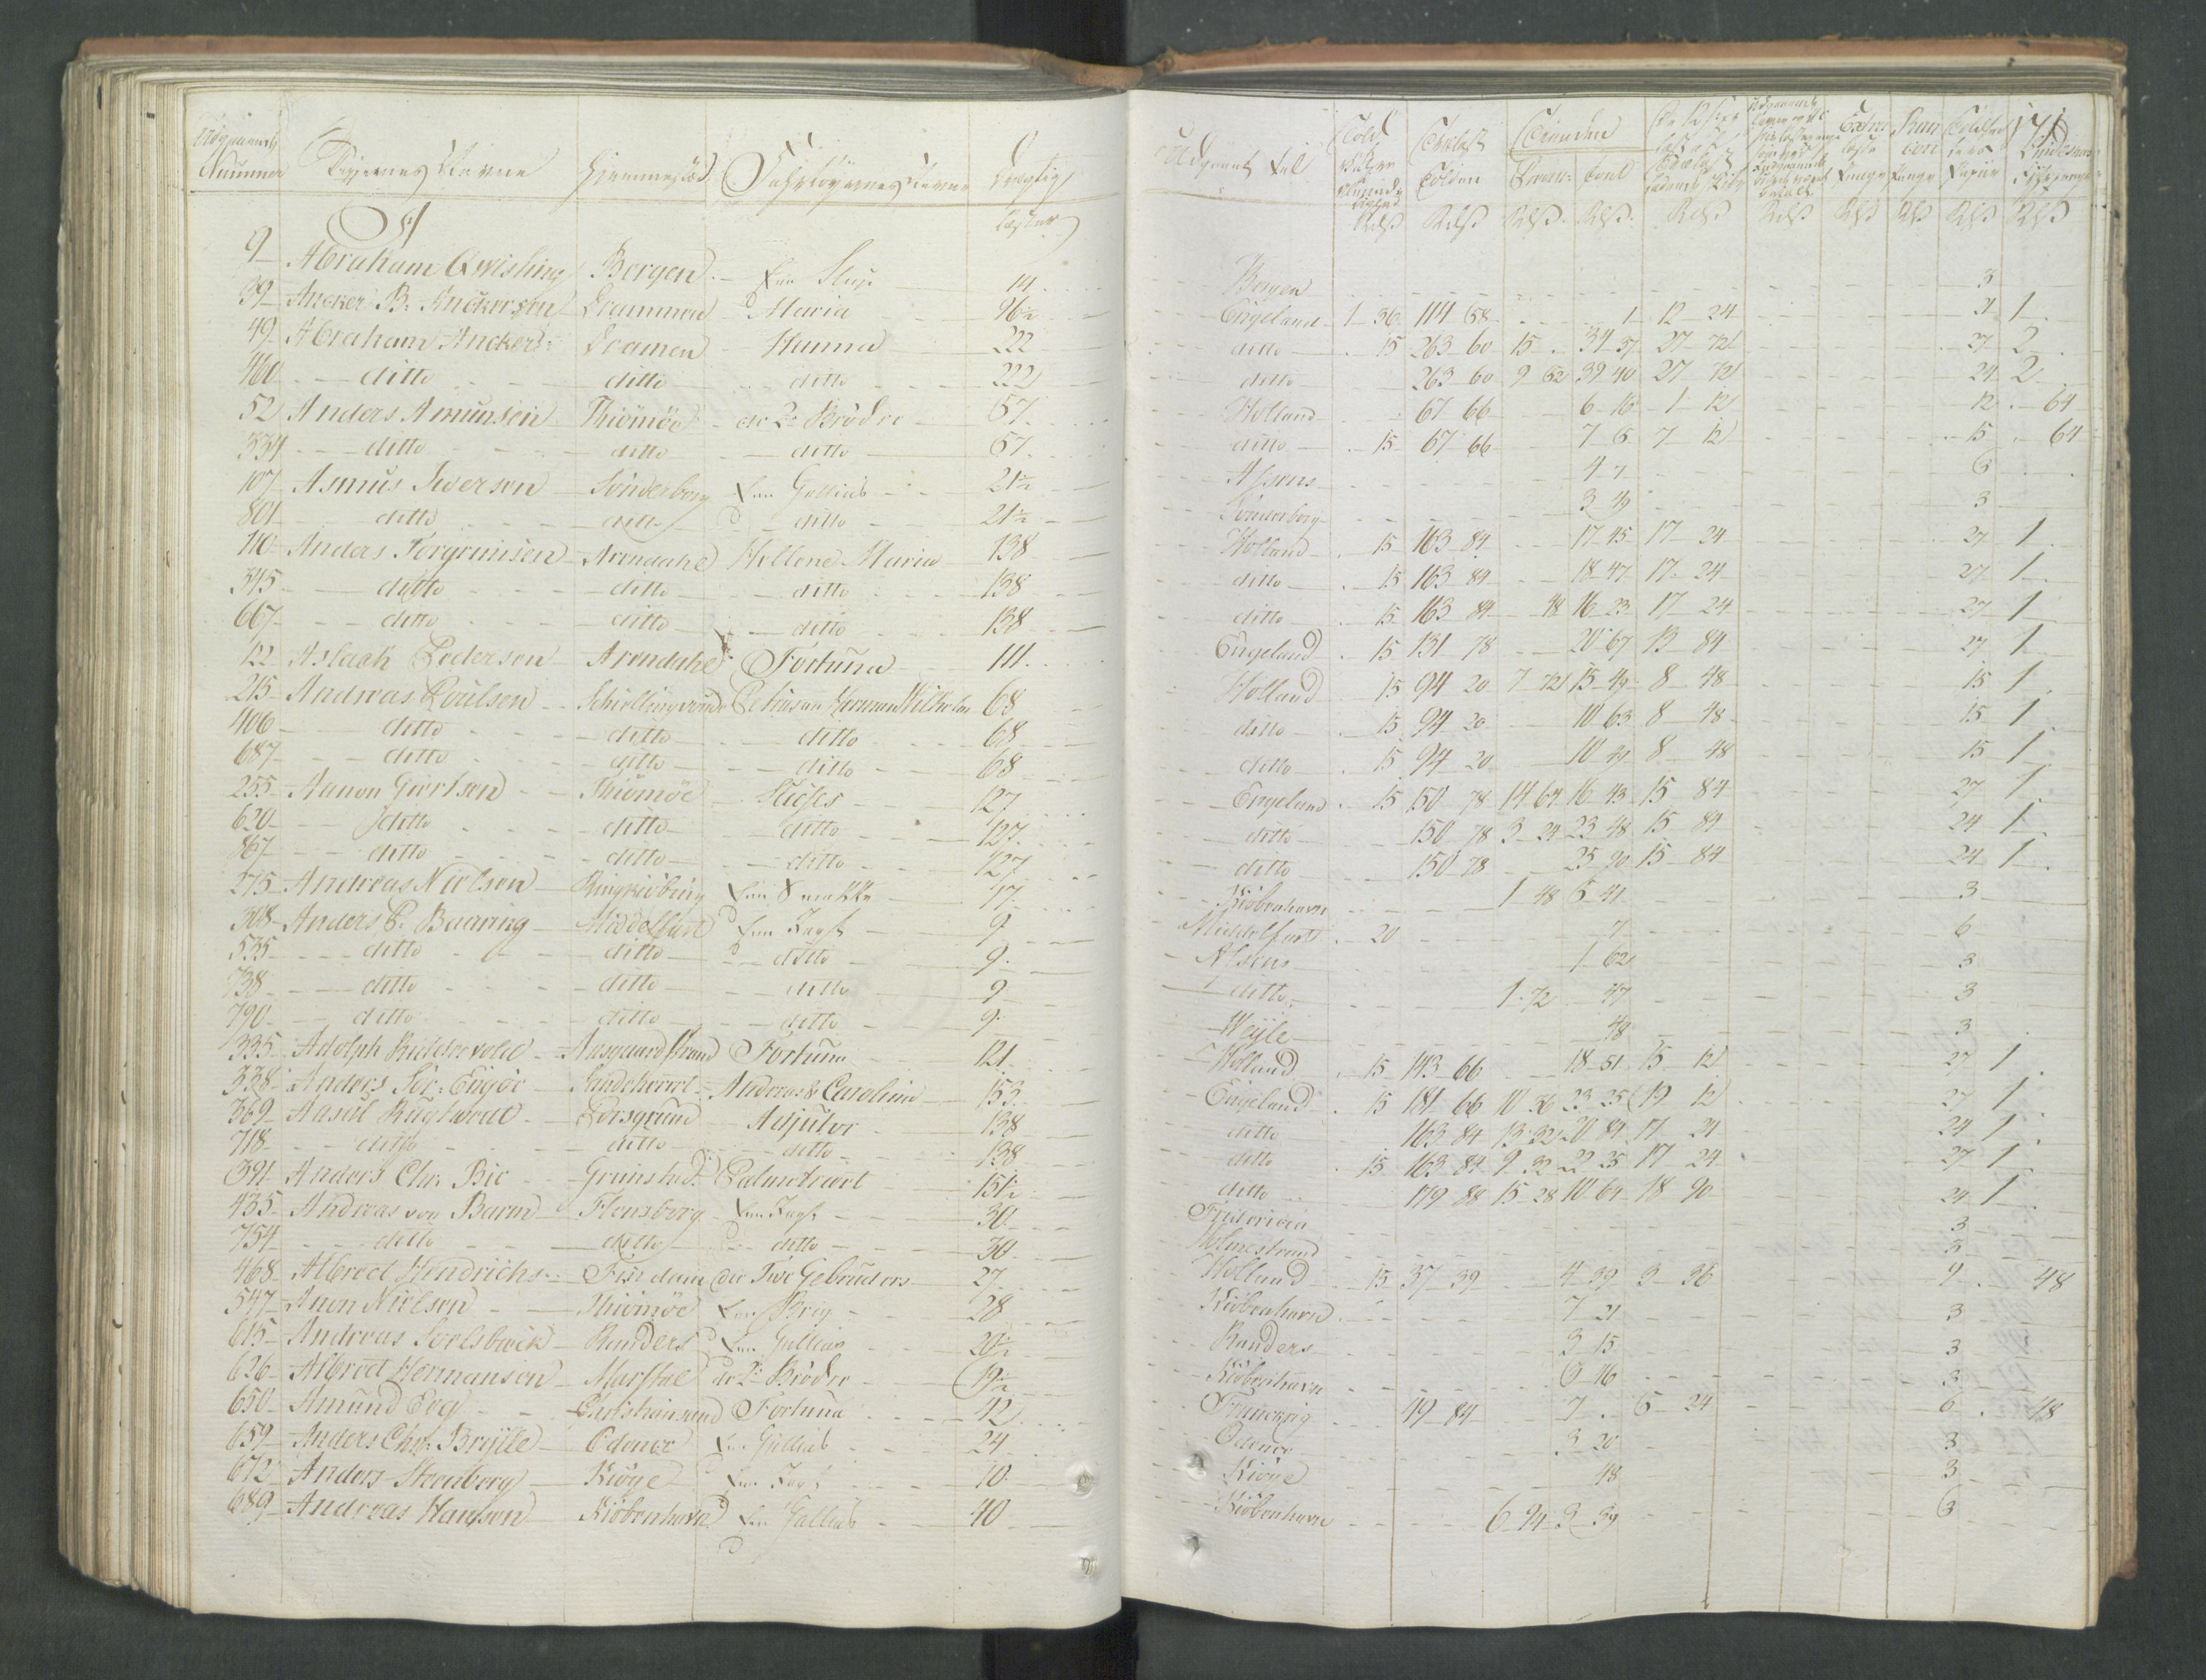 Skippernes Navne Hjemmestæd Fahrtöyernes Navne
A
9 Abraham Qwisling Bergen 14
39 Ancker B: Anckersen Drammen Maria 96½
49 Abraham Anckers: Dramen Hanna 222
460 ditto ditto ditto 222
52 Anders Amunsen Thiömöe de 2de Brödre 57
334 ditto ditto ditto 57
107 Asmus Iwersen Sönderborg Gallias 21½
801 ditto ditto ditto 21½
110 Anders Torgrimsen Arendahl Hellene Maria 138
345 ditto ditto ditto 138
667 ditto ditto ditto 138
122 Aslack Pedersen Arendahl Fortuna 111
215 Andreas Poulsen Petrus an Herman Wilhelm 68
406 ditto ditto ditto 68
687 ditto ditto ditto 68
255 Aanon Giertsen Thiömöe Moses 127
620 ditto ditto ditto 127
867 ditto ditto ditto 127
275 Andreas Nielsen Ringkiöbing Smakke 17
308 Anders P. Baaring Middelfart Jagt 9
535 ditto ditto ditto 9
738 ditto ditto ditto 9
790 ditto ditto ditto 9
335 Adolph Riddervold Aasgaardstrand Fortuna 121
338 Anders Sör: Engöe Sandeherret Andreas & Caroline 153
369 Porsgrund Adjutor 138
718 ditto ditto ditto 138
391 Anders Chr. Bie Grimstad Palmetræet 151½
435 Andreas von Barm Flensborg Jagt 30
754 ditto ditto ditto 30
468 Albrect Hendrichs die Twe Gebruders 27
547 Anon Nielsen Thiömöe Brig 28
615 Andreas Randers Gallias 20½
626 Albrect Hermansen Marstal de 2de Brödre 19½
650 Amund Christiansand Fortuna 42
659 Anders Chr: Brylle Odense Gallias 24
672 Anders Stenberg Kiöge Jagt 10
689 Andreas Hansen Kiöbenhavn Gallias 40
171
Udgaaet til
Bergen 3
Engeland 1 36 114 58 1 12 24 21 1
ditto 15 263 60 15 34 37 27 72 27 2
ditto 263 60 9 62 39 40 27 72 24 2
Holland 67 66 6 16 1 12 12 64
ditto 15 67 66 7 6 7 12 15 64
Assens 6
Sönderborg 3
Holland 15 163 84 17 45 17 24 27 1
ditto 15 163 84 18 47 17 24 27 1
ditto 15 163 84 48 16 23 17 24 27 1
Engeland 15 131 78 20 67 13 84 27 1
Holland 15 94 20 7 72 15 49 8 48 15 1
ditto 15 94 20 10 63 8 48 15 1
ditto 15 94 20 10 8 48 15 1
Engeland 15 150 78 14 64 16 43 15 84 27 1
ditto 150 78 3 24 23 48 15 84 24 1
ditto 150 78 25 90 15 84 24 1
Kiöbenhavn 1 48 5 41 3
Middelfart 20 7 6
Assens 1 62 3
ditto 1 72 47 3
Weyle 48 3
Holland 15 143 66 18 51 15 12 27 1
Engeland 15 181 66 10 36 23 25 19 12 27 1
ditto 163 84 13 32 20 84 17 24 24 1
ditto 15 163 84 9 32 22 35 17 24 27 1
ditto 179 88 15 28 10 64 18 90 24 1
Fridericia 3
Holmestrand 3
Holland 15 37 39 4 39 3 36 9 48
Kiöbenhavn 7 21 3
Randers 3 15 3
Kiöbenhavn 6 16 3
49 84 7 5 24 6 48
Odense 3 20 3
Kiöge 48 3
Kiöbenhavn 6 94 3 39 6